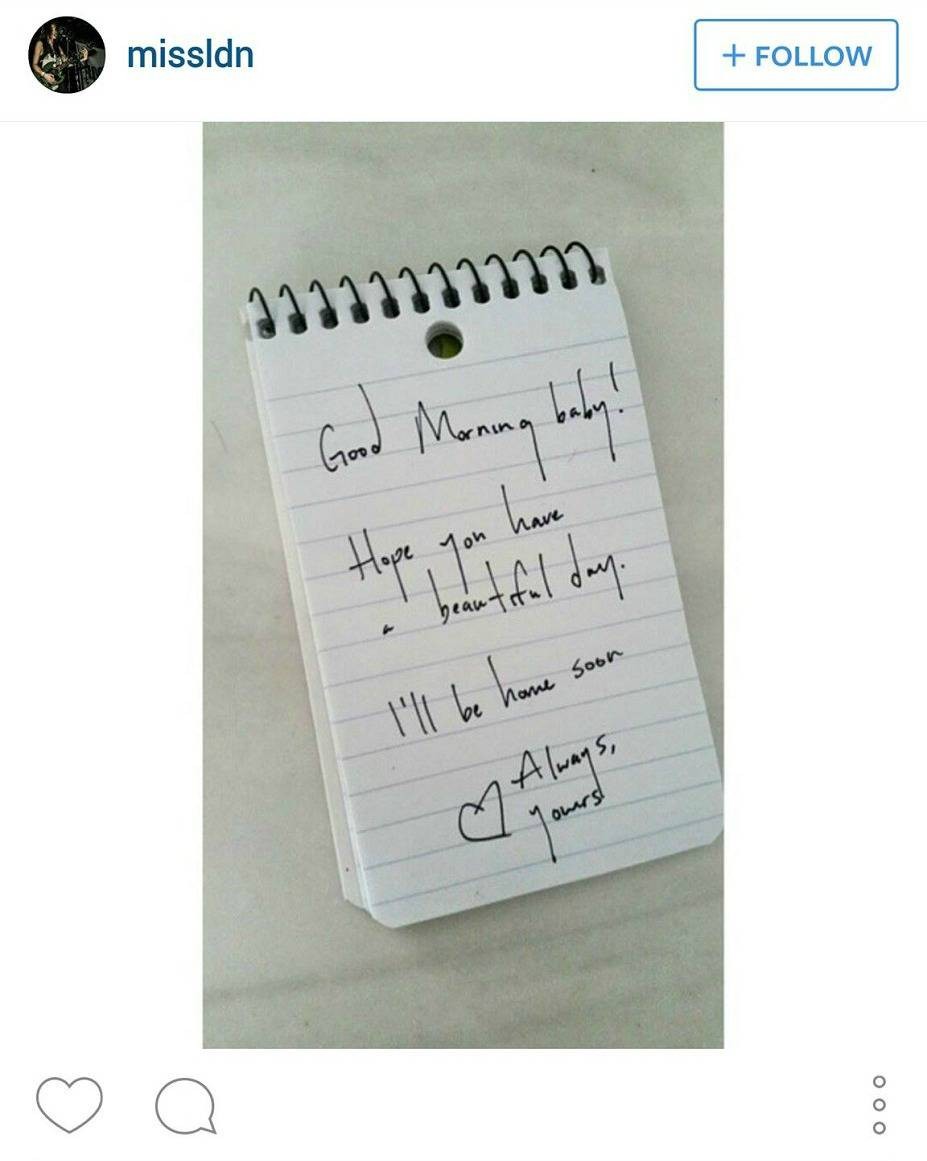 missldn
+ FOLLOW
Good Morning baby!
Hope you have
a beautiful day.
I'll be home soon
♡ Always,
yours